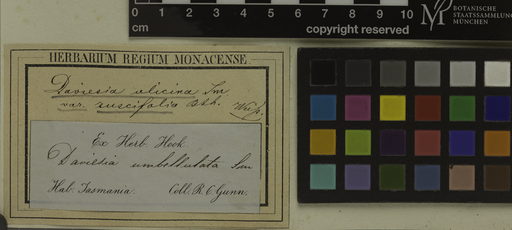 0 1 2 3 4 5 6 7 8 9 10
cm
copyright reserved
BOTANISCHE
STAATSSAMMLUNG
MÜNCHEN
HERBARIUM REGIUM MONACENSE.
Daviesia ulicina Sm
var. ruscifolia Bth.
Ex Herb. Hook
Daviesia umbellulata Sm
Hab. Tasmania. Coll. R. C. Gunn.